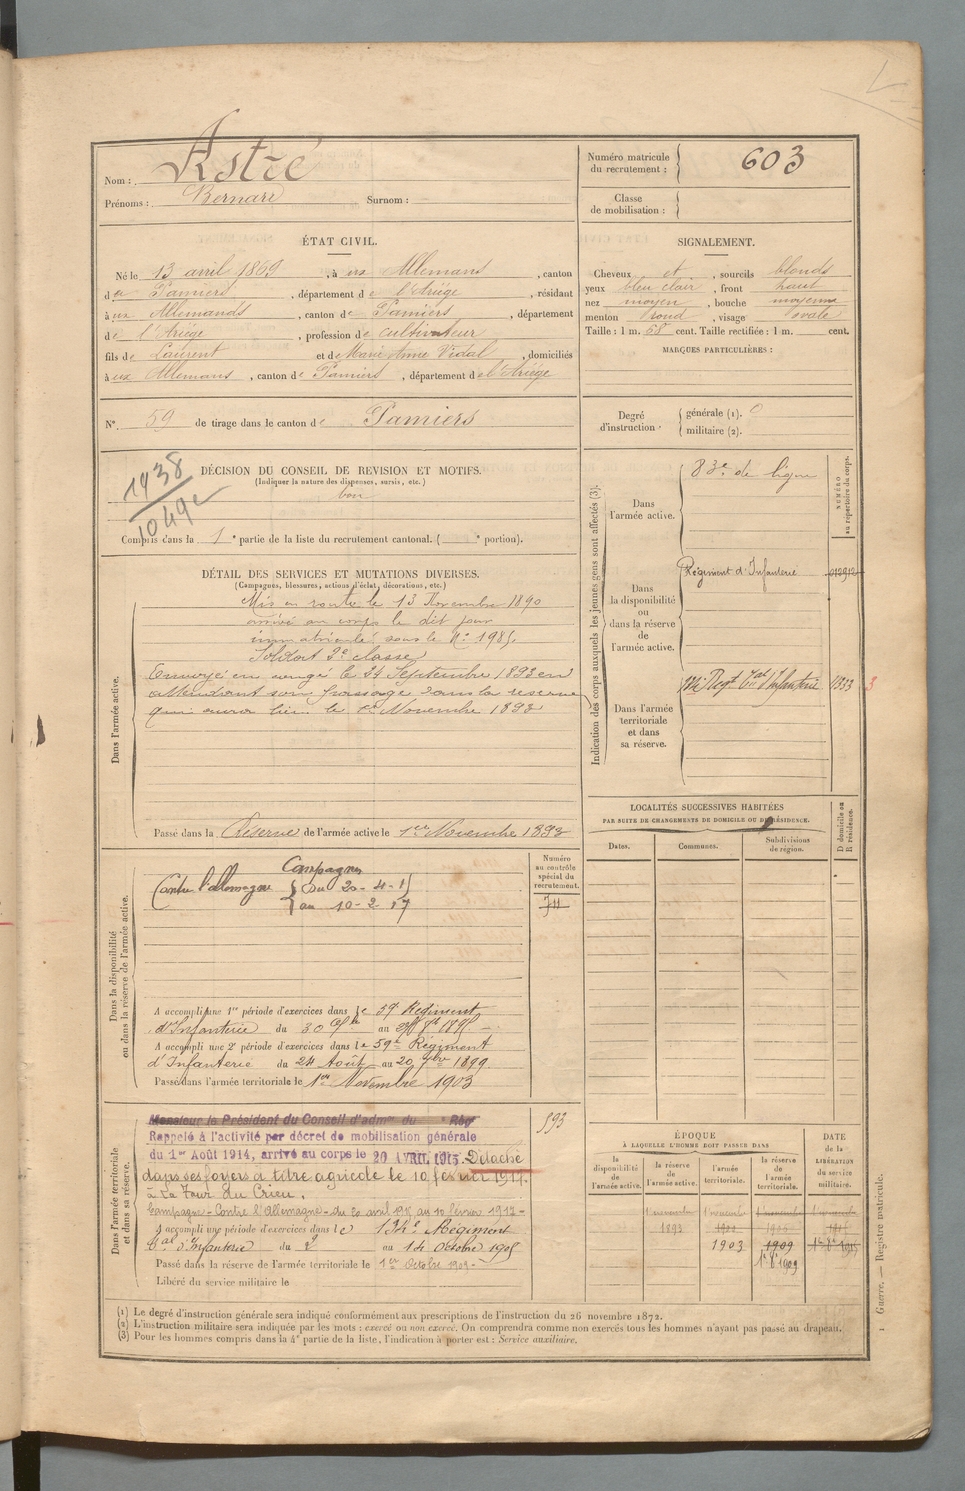 Nom : Astre
Prénoms : Bernard Surnom :
Numéro matricule du recrutement : 603
Classe de mobilisation :
ÉTAT CIVIL.
Né le 13 avril 1869, à ux Allemans, canton
de Pamiers, département de l'Ariège, résidant
à ux Allemands, canton de Pamiers, département
de l'Ariège, profession de cultivateur
fils de Laurent et de Marie Anne Vidal, domiciliés
à ux Allemans, canton de Pamiers, département de l'Ariège
SIGNALEMENT.
Cheveux et, sourcils blonds
yeux bleu clair, front haut
nez moyen, bouche moyenne
menton rond, visage ovale
Taille : 1 m. 58 cent. Taille rectifiée : 1 m. cent.
MARQUES PARTICULIÈRES :
N° 59 de tirage dans le canton de Pamiers
Degré d'instruction : générale (1). 0
militaire (2).
1938
1049
DÉCISION DU CONSEIL DE REVISION ET MOTIFS.
(Indiquer la nature des dispenses, sursis, etc.)
bon
Compris dans la 1e partie de la liste du recrutement cantonal. ( e portion).
DÉTAIL DES SERVICES ET MUTATIONS DIVERSES.
(Campagnes, blessures, actions d'éclat, décorations, etc.)
Dans l'armée active.
Mis en route le 13 Novembre 1890
arrivé au corps le dit jour
immatriculé sous le N° 1985.
Soldat 2e classe
Envoyé en congé le 24 Septembre 1893 en
attendant son passage dans la réserve
qui aura lieu le 1er Novembre 1893
Passé dans la Réserve de l'armée active le 1er Novembre 1893
Indication des corps auxquels les jeunes gens sont affectés (3).
NUMÉRO au répertoire du corps.
Dans l'armée active.
83e de ligne
Dans la disponibilité ou dans la réserve de l'armée active.
Régiment d'Infanterie 012912
Dans l'armée territoriale et dans sa réserve.
Regt Tal d'Infanterie 1333 3
LOCALITÉS SUCCESSIVES HABITÉES
PAR SUITE DE CHANGEMENTS DE DOMICILE OU DE RÉSIDENCE.
Dates. Communes. Subdivisions de région. D domicile ou R résidence.
Dans la disponibilité ou dans la réserve de l'armée active.
Numéro au contrôle spécial du recrutement.
711
Campagnes
Contre l'allemagne { du 20-4-15
au 10-2-17
A accompli une 1re période d'exercices dans le 59e Régiment
d'Infanterie du 30 au
A accompli une 2e période d'exercices dans le 59e Régiment
d'Infanterie du 24 Août au 20 7bre 1899.
Passé dans l'armée territoriale le 1er Novembre 1903
Dans l'armée territoriale et dans sa réserve.
593
Monsieur le Président du Conseil d'admon du Rég
Rappelé à l'activité par décret de mobilisation générale
du 1er Août 1914, arrivé au corps le 20 AVRIL 1915. Détaché
dans ses foyers à titre agricole le 10 février 1917.
à La Tour du Crieu.
Campagne - Contre l'Allemagne - du 20 avril 1915 au 10 février 1917-
A accompli une période d'exercices dans le 134e Régiment
Tal d'Infanterie du 2 au 14 Octobre 1905
Passé dans la réserve de l'armée territoriale le 1er Octobre 1909-
Libéré du service militaire le
ÉPOQUE
À LAQUELLE L'HOMME DOIT PASSER DANS
la disponibilité de l'armée active. la réserve de l'armée active. l'armée territoriale. la réserve de l'armée territoriale.
DATE de la LIBÉRATION du service militaire.
1 novembre 1 novembre 1 novembre 1 novembre
1893 1900
1903 1909
1909
(1) Le degré d'instruction générale sera indiqué conformément aux prescriptions de l'instruction du 26 novembre 1872.
(2) L'instruction militaire sera indiquée par les mots : exercé ou non exercé. On comprendra comme non exercés tous les hommes n'ayant pas passé au drapeau.
(3) Pour les hommes compris dans la 4e partie de la liste, l'indication à porter est : Service auxiliaire.
1 Guerre. — Registre matricule.